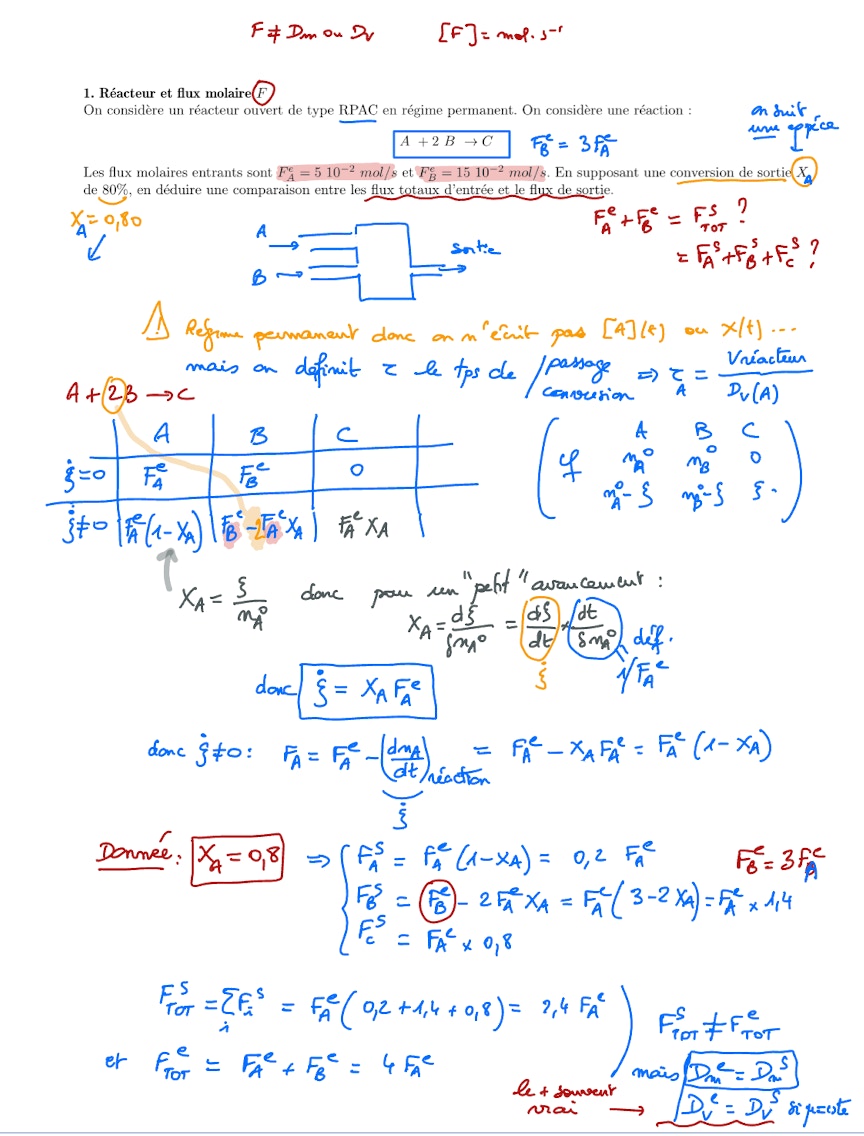 F ≠ Dm ou Dv    [F] = mol.s⁻¹
1. Réacteur et flux molaire F
On considère un réacteur ouvert de type RPAC en régime permanent. On considère une réaction :
on suit
une espèce
A + 2 B → C    F_B^e = 3 F_A^e
Les flux molaires entrants sont F_A^e = 5 10⁻² mol/s et F_B^e = 15 10⁻² mol/s. En supposant une conversion de sortie X_A
de 80%, en déduire une comparaison entre les flux totaux d'entrée et le flux de sortie.
X_A = 0,80
F_A^e + F_B^e = F_TOT^s ?
= F_A^s + F_B^s + F_C^s ?
A
B
sortie
⚠ Régime permanent donc on n'écrit pas [A](t) ou X(t) ...
mais on définit τ le tps de / passage
conversion ⇒ τ_A = V réacteur / D_V(A)
A + 2B → C
A B C
ξ̇=0 F_A^e F_B^e 0
ξ̇≠0 F_A^e(1-X_A) F_B^e - 2F_A^e X_A F_A^e X_A
( A B C
cf n_A^0 n_B^0 0
n_A^0-ξ n_B^0-ξ ξ . )
X_A = ξ / n_A^0 donc pour un "petit" avancement :
X_A = dξ / δn_A^0 = dξ/dt × dt/δn_A^0 déf.
ξ̇    1/F_A^e
donc ξ̇ = X_A F_A^e
donc ξ̇≠0 : F_A = F_A^e - (dn_A/dt)réaction = F_A^e - X_A F_A^e = F_A^e (1-X_A)
ξ̇
Donnée : X_A = 0,8 ⇒ { F_A^s = F_A^e (1-X_A) = 0,2 F_A^e    F_B^e = 3 F_A^e
F_B^s = F_B^e - 2 F_A^e X_A = F_A^e (3-2 X_A) = F_A^e × 1,4
F_C^s = F_A^e × 0,8
F_TOT^s = Σ_i F_i^s = F_A^e (0,2 + 1,4 + 0,8) = 2,4 F_A^e
et F_TOT^e = F_A^e + F_B^e = 4 F_A^e
F_TOT^s ≠ F_TOT^e
mais Dm^e = Dm^s
le + souvent
vrai → Dv^e = Dv^s si ρ=cste